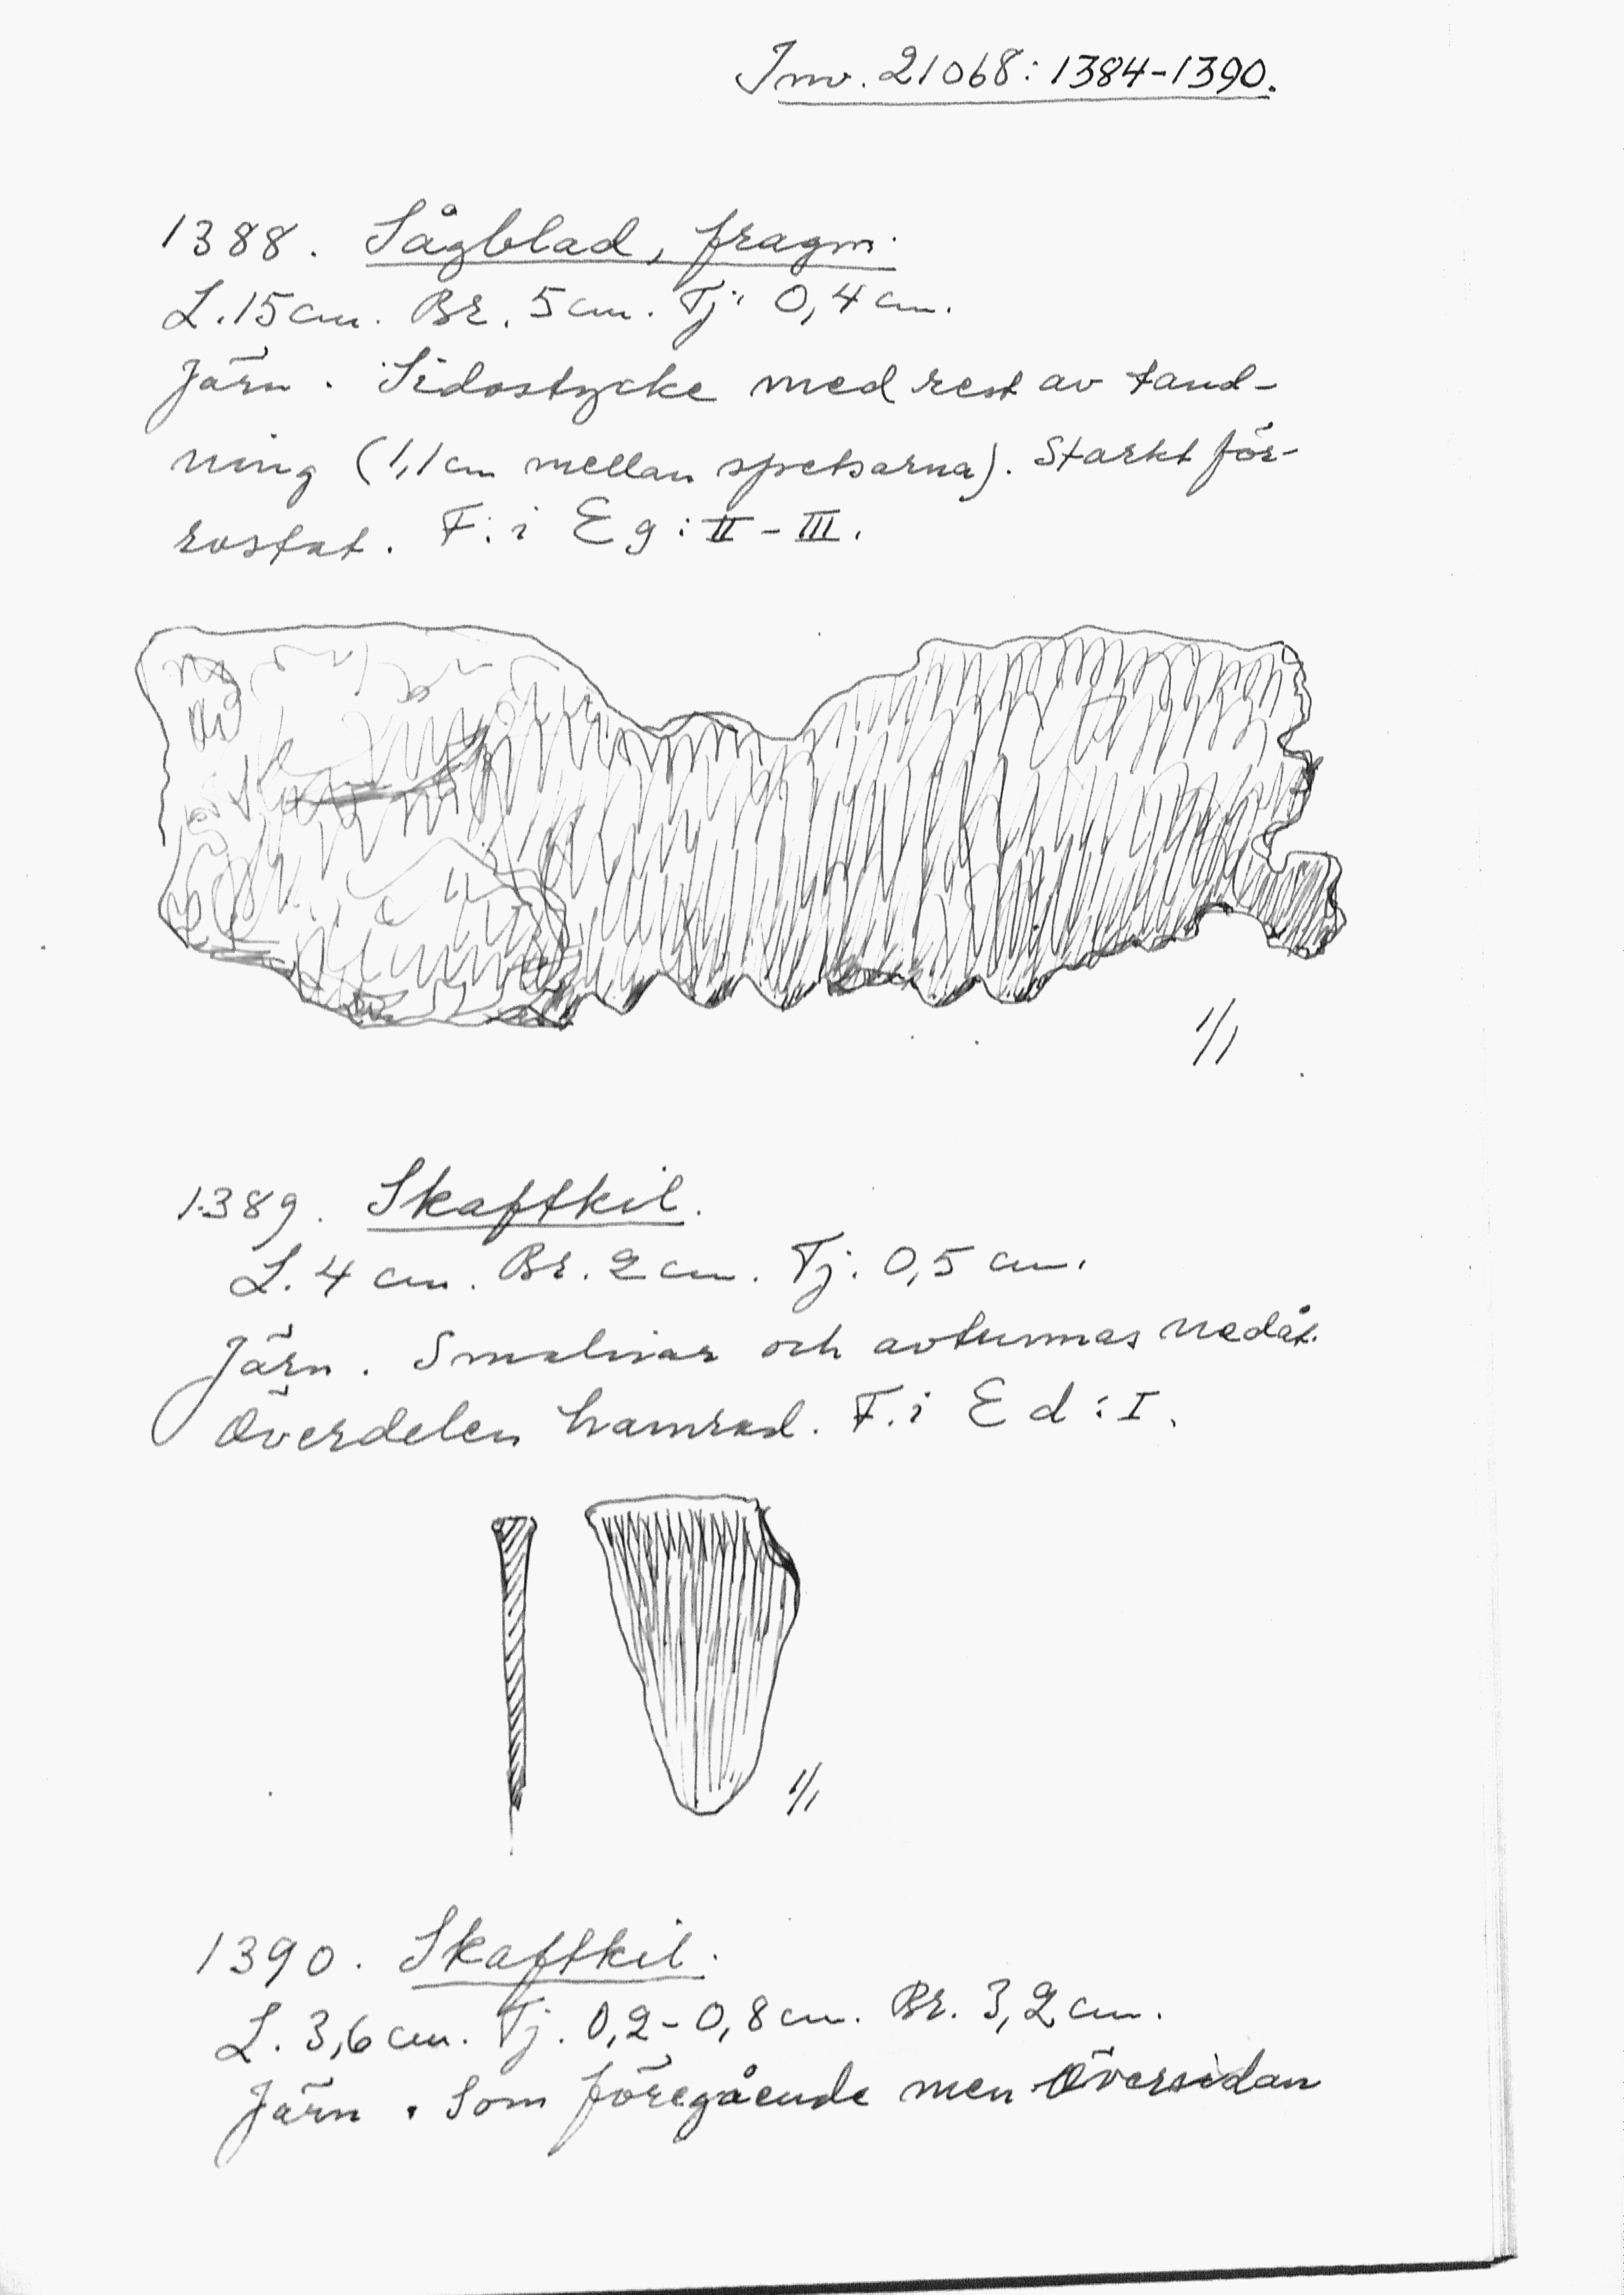 Inv. 21068: 1384-1390.
1388. Sågblad, fragm.
L. 15 cm. Br. 5 cm. Tj. 0,4 cm.
Järn. Sidostycke med rest av tand-
ning (1,1 cm mellan spetsarna). Starkt för-
rostat. F. i E g : II - III.
1/1
1389. Skaftkil.
L. 4 cm. Br. 2 cm. Tj. 0,5 cm.
Järn. Smalnar och avtunnas nedåt.
Överdelen hamrad. F. i E d : I.
1/1
1390. Skaftkil.
L. 3,6 cm. Tj. 0,2 - 0,8 cm. Br. 3,2 cm.
Järn. Som föregående men översidan